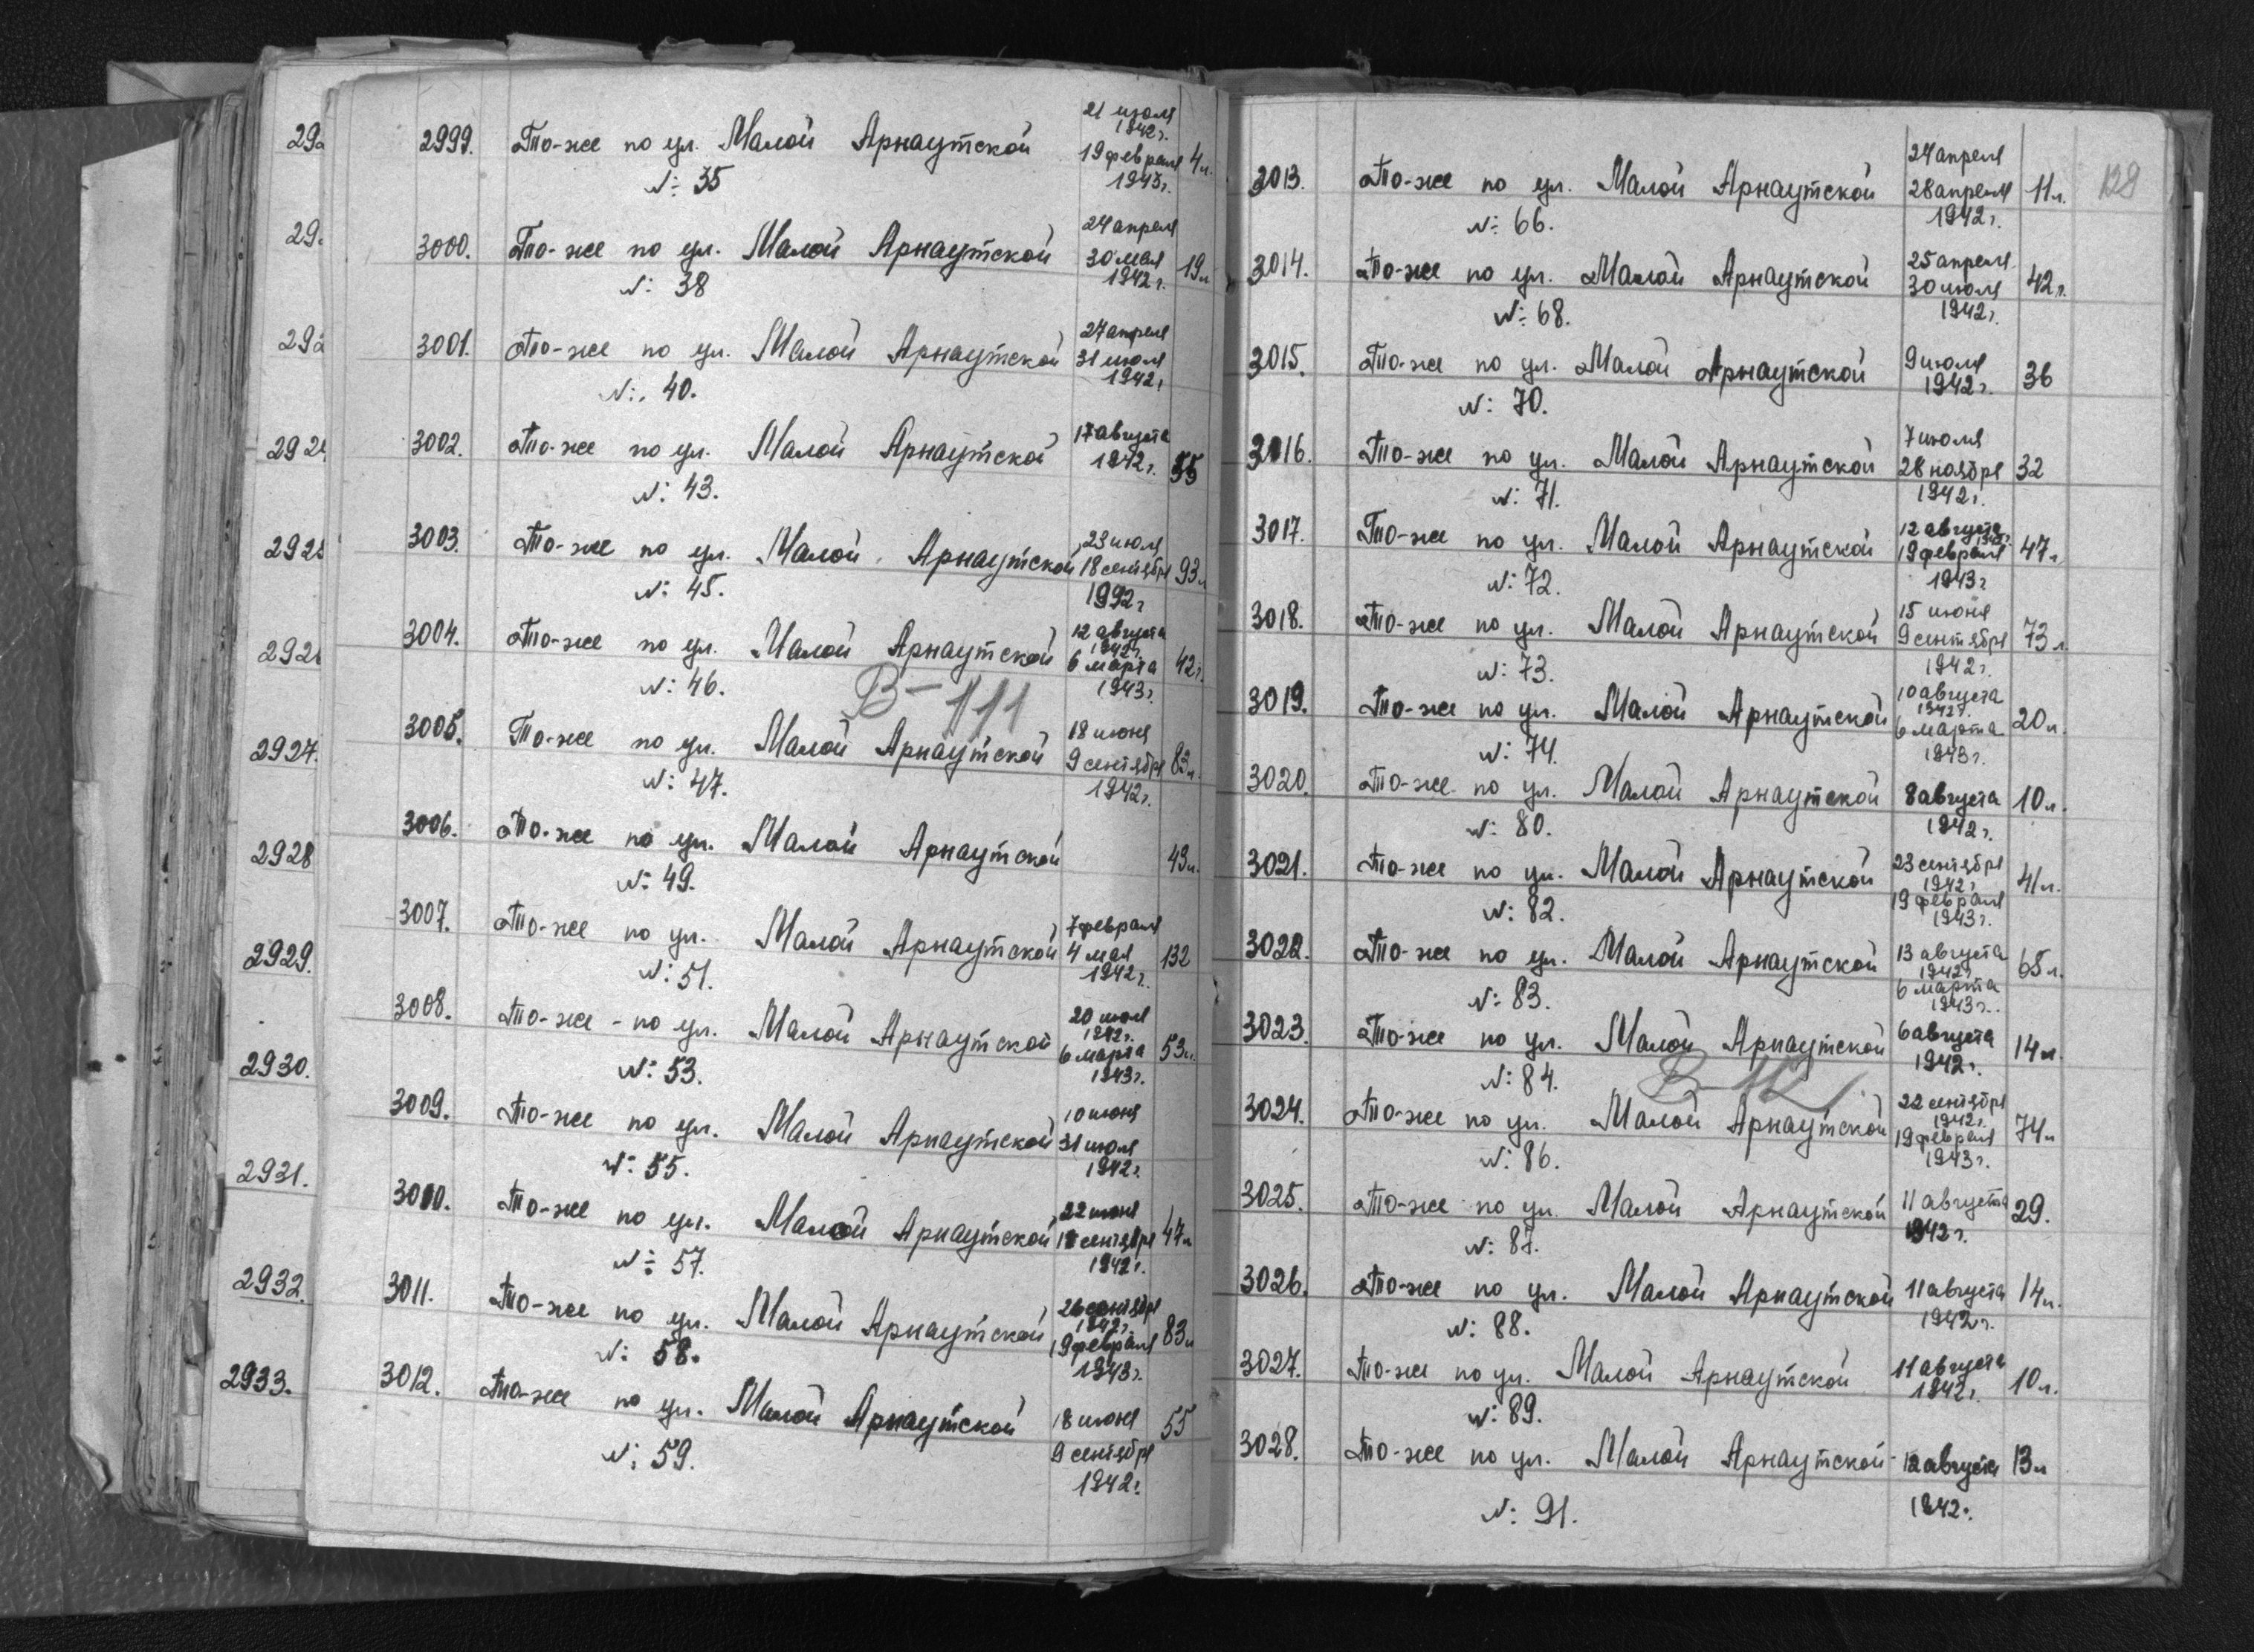 292
29
292
2924
2925
2926
2927.
2928
2929.
2930.
2931.
2932.
2933.
2999. То-же по ул. Малой Арнаутской 21 июля 1942г. 19 февраля 1943г. 4л.
№ 35
3000. То-же по ул. Малой Арнаутской 24 апреля 30 мая 1942г. 19л
№ 38
3001. То-же по ул. Малой Арнаутской 27 апреля 31 июля 1942г
№ 40.
3002. То-же по ул. Малой Арнаутской 17 августа 1942г. 55
№ 43.
3003. То-же по ул. Малой Арнаутской 23 июля 18 сентября 1992г 93л
№ 45.
3004. То-же по ул. Малой Арнаутской 12 августа 1942г. 6 марта 1943г. 42г.
№ 46.
В-111
3005. То-же по ул. Малой Арнаутской 18 июня 9 сентября 1942г. 83л.
№ 47.
3006. То-же по ул. Малой Арнаутской 43л.
№ 49.
3007. То-же по ул. Малой Арнаутской 7 февраля 4 мая 1942г. 132
№ 51.
3008. То-же - по ул. Малой Арнаутской 20 июля 1942г. 6 марта 1943г. 53л.
№ 53.
3009. То-же по ул. Малой Арнаутской 10 июня 31 июля 1942г.
№ 55.
3010. То-же по ул. Малой Арнаутской 22 июня 18 сентября 1942г. 47л
№ 57.
3011. То-же по ул. Малой Арнаутской 26 сентября 1942г. 19 февраля 1943г. 83л
№ 58.
3012. То-же по ул. Малой Арнаутской 18 июня 9 сентября 1942г. 55
№ 59.
128
3013. То-же по ул. Малой Арнаутской 24 апреля 28 апреля 1942г. 11л.
№ 66.
3014. То-же по ул. Малой Арнаутской 25 апреля 30 июля 1942г. 42г.
№ 68.
3015. То-же по ул. Малой Арнаутской 9 июля 1942г. 36
№ 70.
3016. То-же по ул. Малой Арнаутской 7 июля 28 ноября 1942г. 32
№ 71.
3017. То-же по ул. Малой Арнаутской 12 августа 1942г. 19 февраля 1943г 47л
№ 72.
3018. То-же по ул. Малой Арнаутской 15 июня 9 сентября 1942г. 73л.
№ 73.
3019. То-же по ул. Малой Арнаутской 10 августа 1942г. 6 марта 1943г. 20л.
№ 74.
3020. То-же по ул. Малой Арнаутской 8 августа 1942г. 10л.
№ 80.
3021. То-же по ул. Малой Арнаутской 23 сентября 1942г 19 февраля 1943г. 41л.
№ 82.
3022. То-же по ул. Малой Арнаутской 13 августа 1942г. 6 марта 1943г. 65л.
№ 83.
3023. То-же по ул. Малой Арнаутской 6 августа 1942г. 14л.
№ 84.
В-112
3024. То-же по ул. Малой Арнаутской 22 сентября 1942г. 19 февраля 1943г. 74л
№ 86.
3025. То-же по ул. Малой Арнаутской 11 августа 1942г. 29.
№ 87.
3026. То-же по ул. Малой Арнаутской 11 августа 1942г. 14л.
№ 88.
3027. То-же по ул. Малой Арнаутской 11 августа 1942г. 10л.
№ 89.
3028. То-же по ул. Малой Арнаутской 12 августа 1942г. 13л
№ 91.